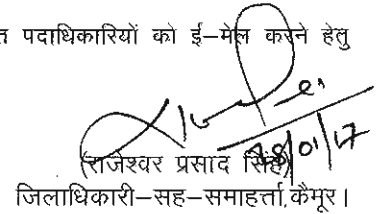 त पदाधिकारियों को ई–मेल करने हेतु
(राजेश्वर प्रसाद सिंह)
जिलाधिकारी–सह–समाहर्त्ता,कैमूर।